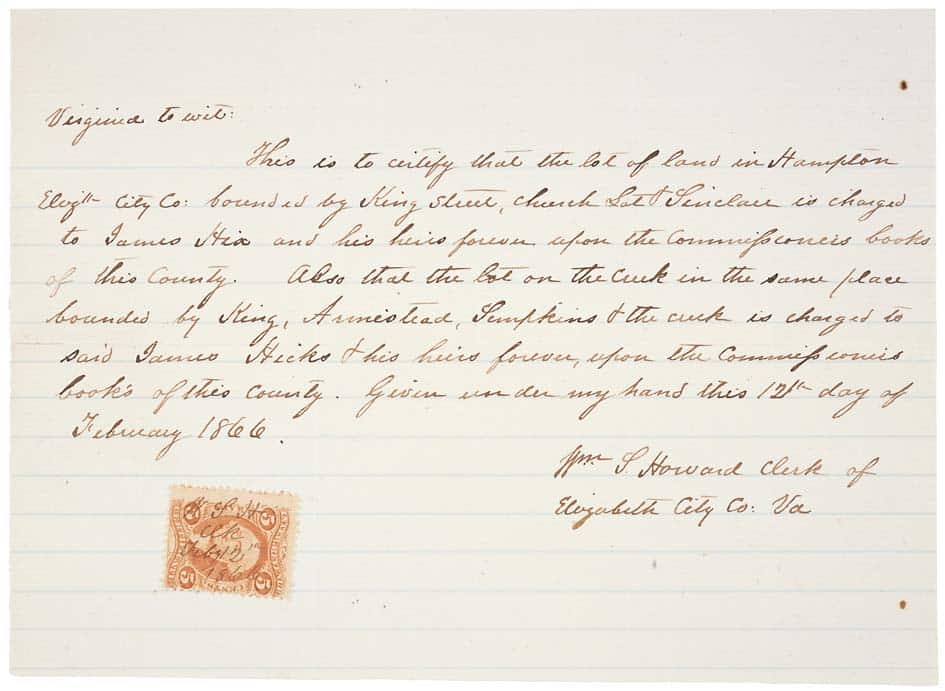 Virginia to wit:
This is to certify that the lot of land in Hampton
Elizth City Co: bounded by King Street, church Lot & Sinclair is charged
to James Hix and his heirs forever upon the Commissioners books
of this County. Also that the lot on the creek in the same place
bounded by King, Armistead, Simpkins & the creek is charged to
said James Hicks & his heirs forever, upon the Commissioners
book's of this county. Given under my hand this 12th day of
February 1866.
Wm S. Howard Clerk of
Elizabeth City Co: Va
5 5
W S H
Clk
Feby 12th
1866
5 5